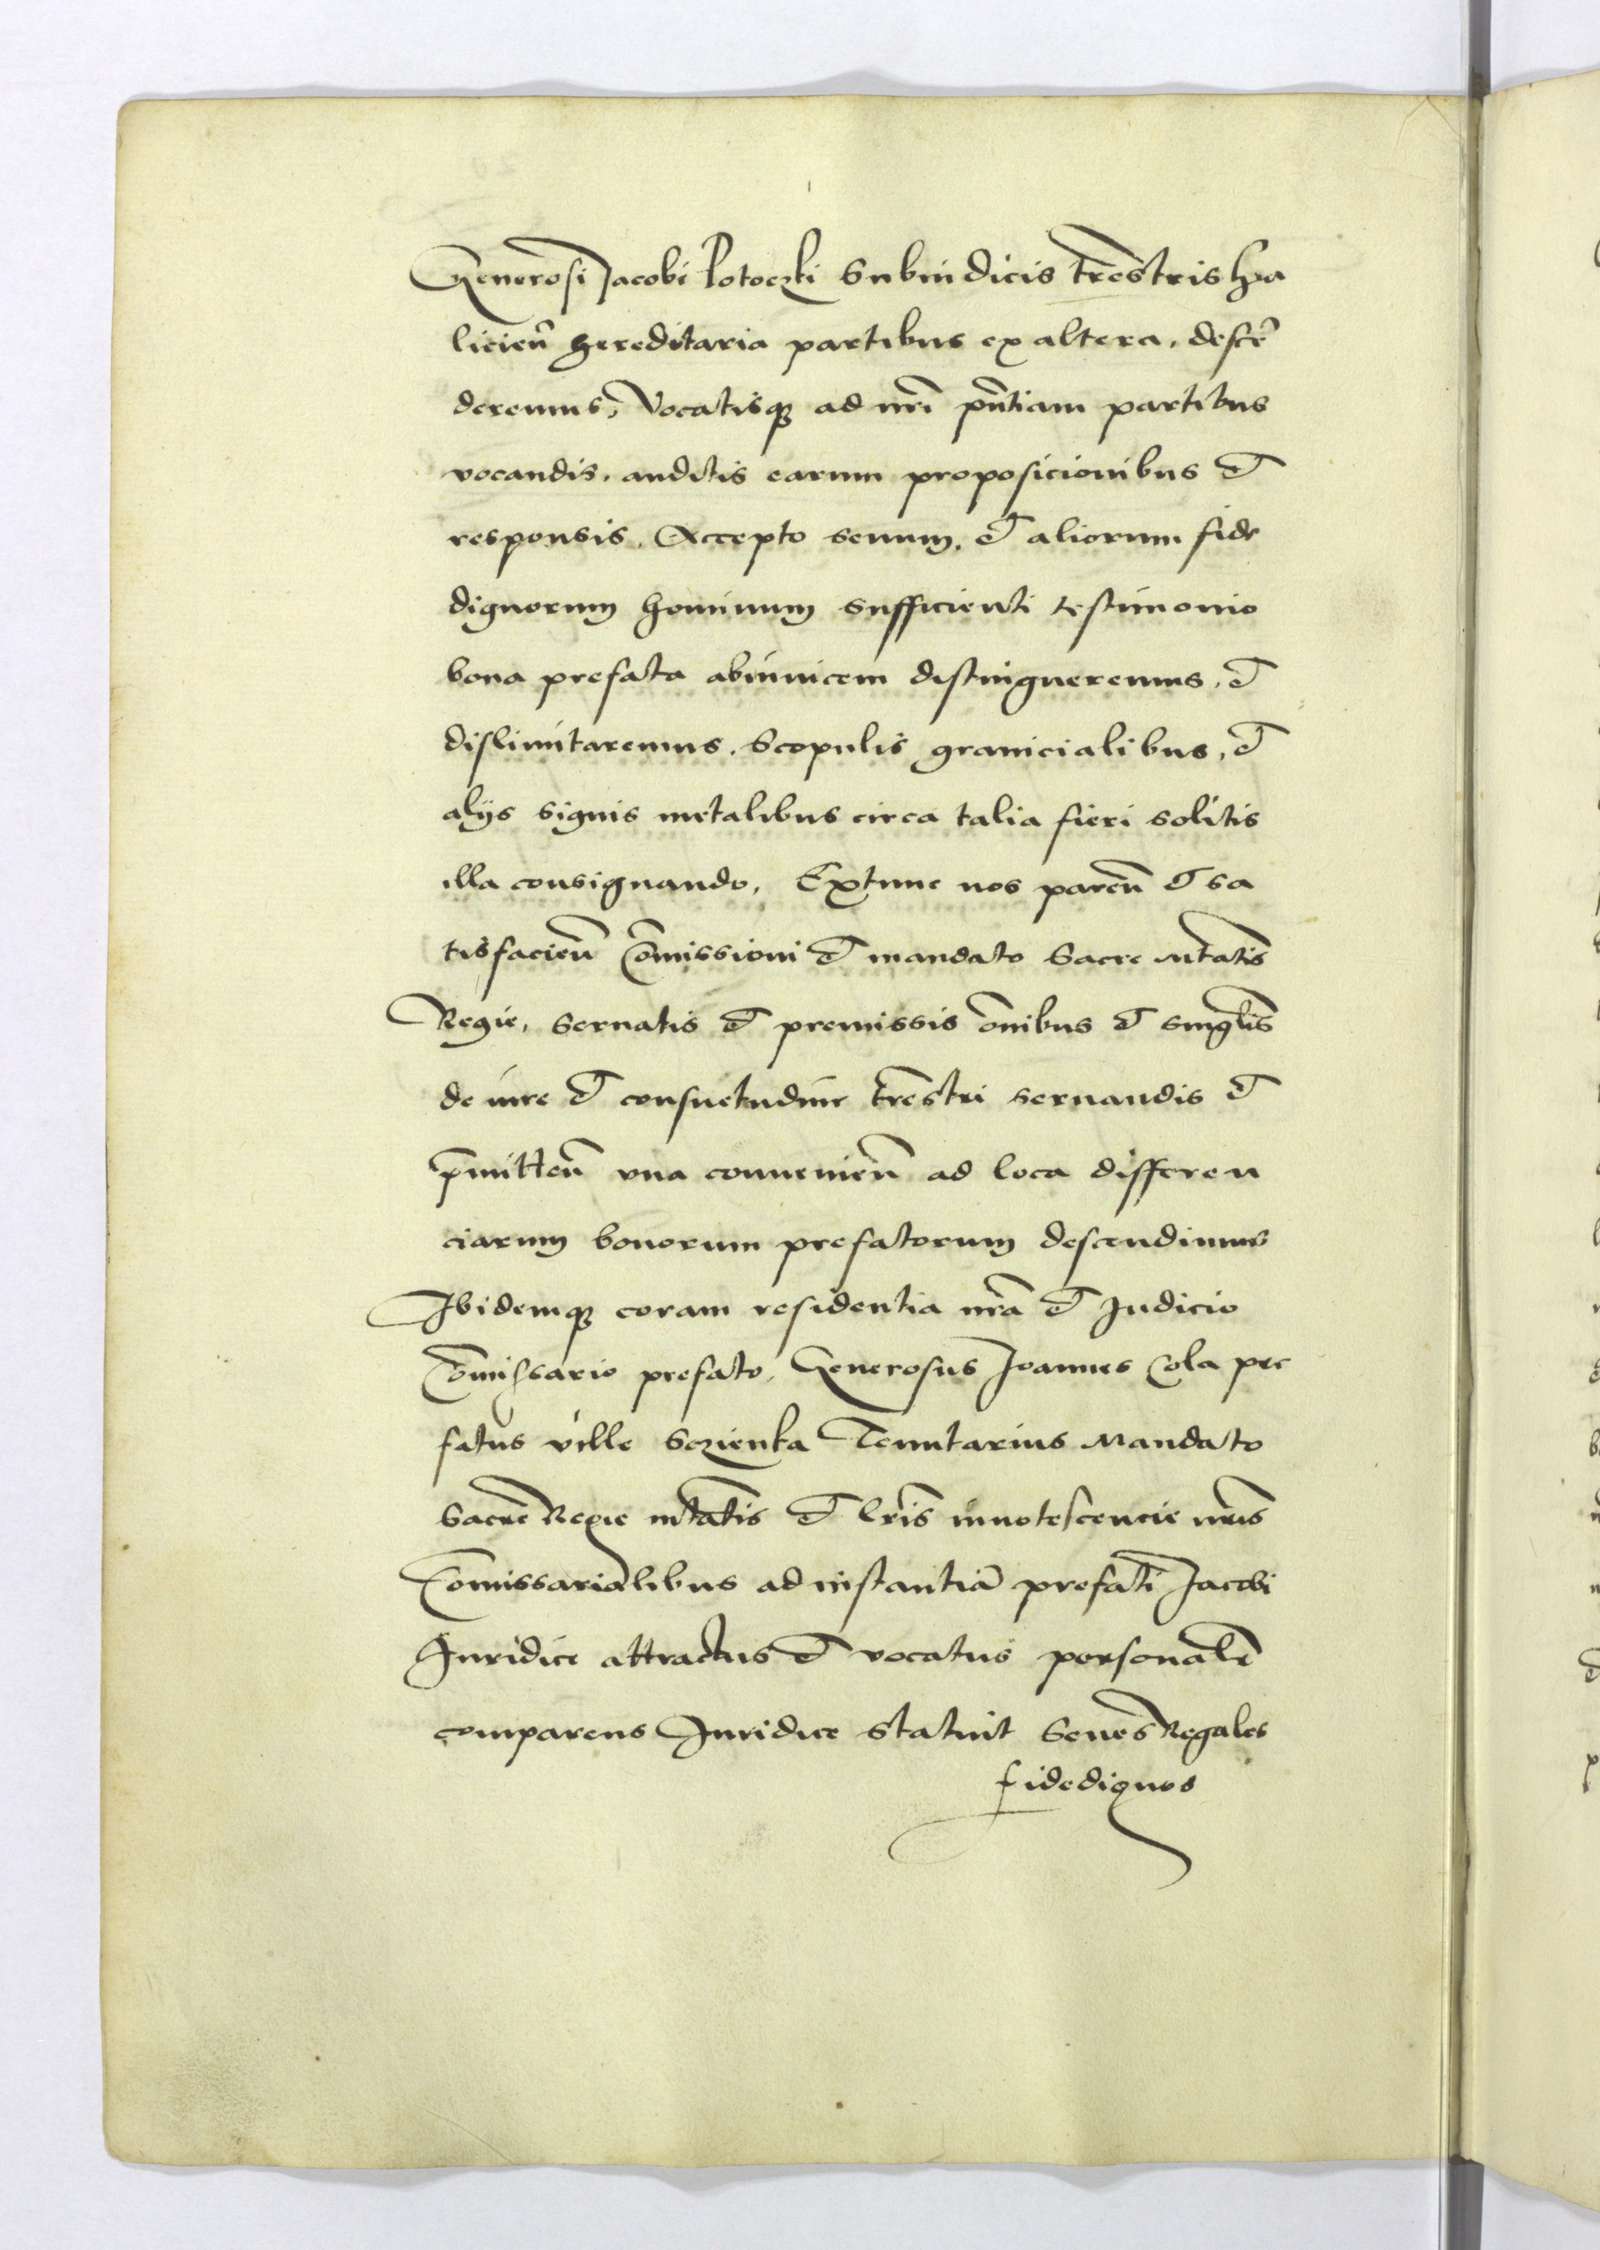 Generosi Jacobi Potoczki Subiudicis tre͂stris Ha
licien͂ hereditaria partibus ex altera, desce͂
deremus, Vocatisq3 ad nr͂i pn͂tiam partibus
vocandis, auditis earum proposicionibus et
responsis, Accepto senum, et aliorum fide
dignorum hominum sufficienti testimonio
bona prefata abinuicem distingueremus, et
dislimitaremus, Scopulis granicialibus, et
alijs signis metalibus circa talia fieri solitis
illa consignando, Extunc nos paren͂ et sa
tisfacien͂ Co͂missioni et mandato Sacre Mtatis͂
Regie, seruatis et premissis o͂nibus et singlis͂
de iure et consuetudine tre͂stri seruandis et
p͂mitten͂ vna conuenien͂ ad loca differen
ciarum bonorum prefatorum descendimus
Ibidemq3 coram residentia nr͂a et Iudicio
Co͂missario prefato, Generosus Joannes Cola pre
fatus ville Sozienka Tenutarius Mandato
Sacre Regie mtatis͂ et lr͂is innotescencie nr͂is
Co͂missarialibus ad instantia͂ prefati Jacobi
Iuridice attractus et vocatus personalr͂
comparens Iuridice statuit Senes Regales
fidedignos